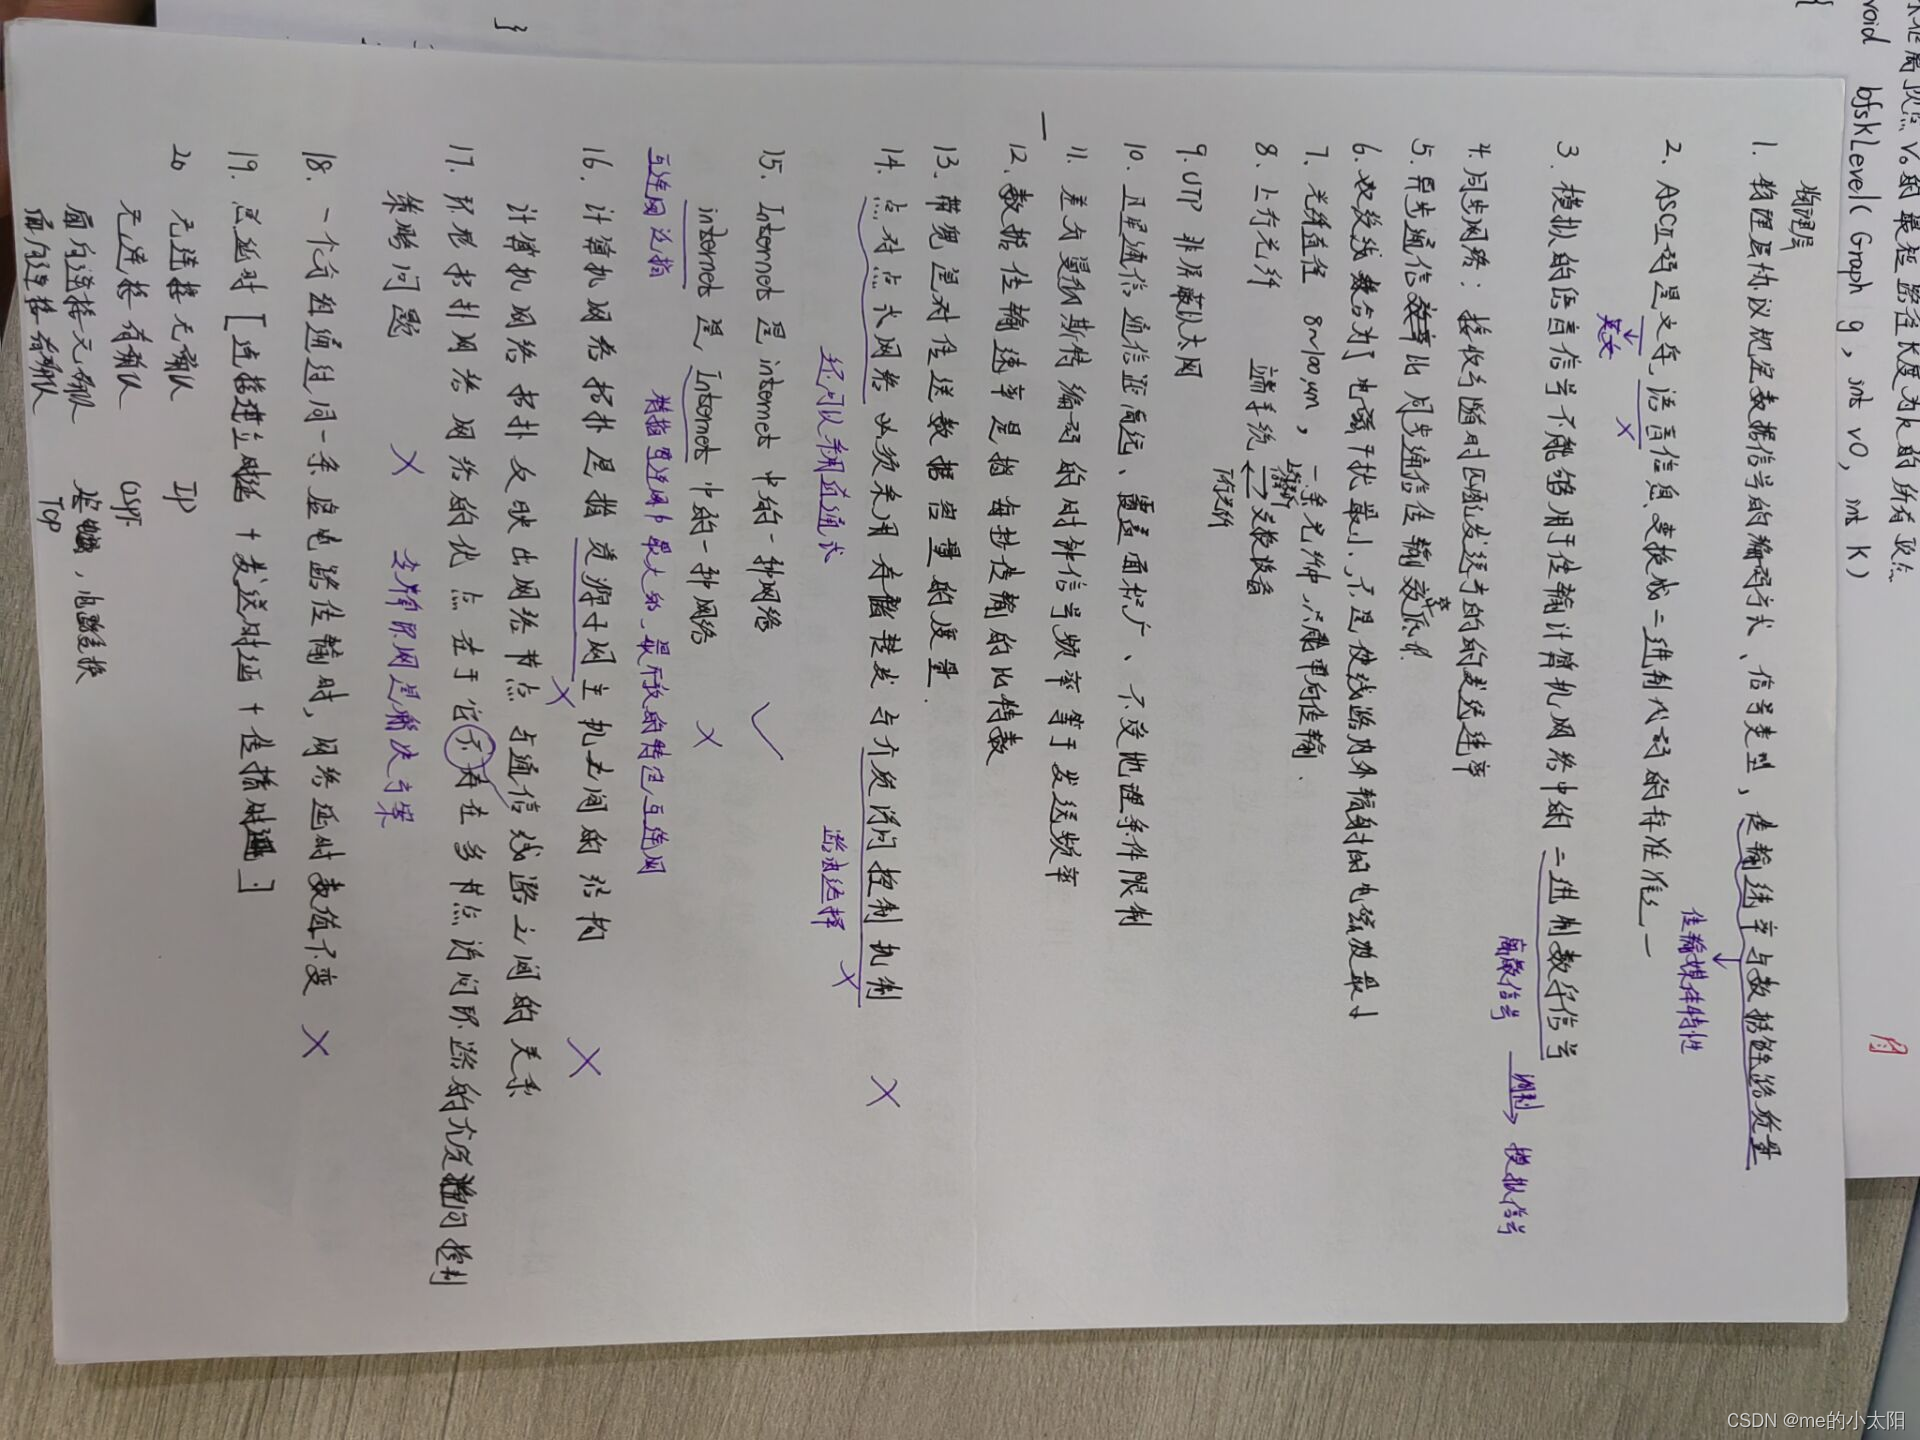 void bfskLevel(Graph g, int v0, int K)
物理层
1. 物理层协议规定数据信号的编码方式、信号类型,传输速率与数据链路质量
传输媒体特性
2. ASCII码是文字,语言信息变换成二进制代码的标准之一
英文
X
3. 模拟的语言信号不能够用于传输计算机网络中的二进制数字信号
离散信号 调制 模拟信号
4. 同步网路:接收引随时匹配发送方的的发送速率
5. 异步通信比同步通信传输效率低
6. 双绞线 为了电磁干扰最小,不是使线路内外辐射的电磁波最小
7. 光纤直径 8~100μm,一条光纤 只能单向传输.
8. 上行光纤 端系统 上行光纤 交换设备
下行光纤
9. UTP 非屏蔽以太网
10. 卫星通信 通信距离远、覆盖面积广、不受地理条件限制
11. 差分曼彻斯特编码的时钟信号频率等于发送频率
12. 数据传输速率是指每秒传输的比特数
13. 带宽是对传送数据容量的度量.
14. 点对点式网络必须采用存储转发与介质访问控制机制 X
还可以采用直通式 路由选择 X
15. Internet 是 internet 中的一种网络 ✓
internet 是 Internet 中的一种网络 X
互连网泛指 特指互连网中最大的、最开放的特色互连网
16. 计算机网络拓扑是指资源子网主机之间的结构 X
X
计算机网络拓扑反映出网络节点与通信线路之间的关系
17. 环形拓扑网络网络的优点在于它不存在多节点访问环路的介质访问控制
策略问题 X 令牌环网是解决方案
18. 一个分组通过同一条虚电路传输时,网络延时数值不变 X
19. 总延时 [连接建立时延 + 发送时延 + 传播时延]
20 无连接无确认 IP
无连接有确认
面向连接无确认 电路交换
面向连接有确认 TCP
CSDN @me的小太阳